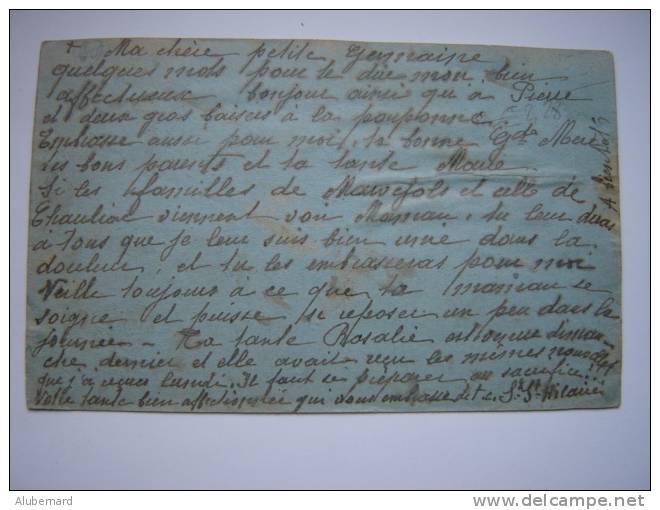 + Ma chère petite Germaine
quelques mots pour te dire mon bien
affectueux bonjour ainsi qu'à Pierre
et deux gros baisers à la pouponne
Embrasse aussi pour moi, ta bonne Gde Mère
tes bons parents et ta tante Marie
Si les familles de Marvejols et celle de
Chauliac viennent voir Maman, tu leur diras
à tous que je leur suis bien unie dans la
douleur, et tu les embrasseras pour moi
Veille toujours à ce que ta maman se
soigne et puisse se reposer un peu dans la
journée - Ta tante Rosalie est venue diman-
che dernier et elle avait reçu les mêmes nouvelles
que j'ai reçues lundi. Il faut se préparer au sacrifice
Votre tante bien affectionnée qui vous embrasse St Hilaire
A bientôt
Alubernard
www.delcampe.net